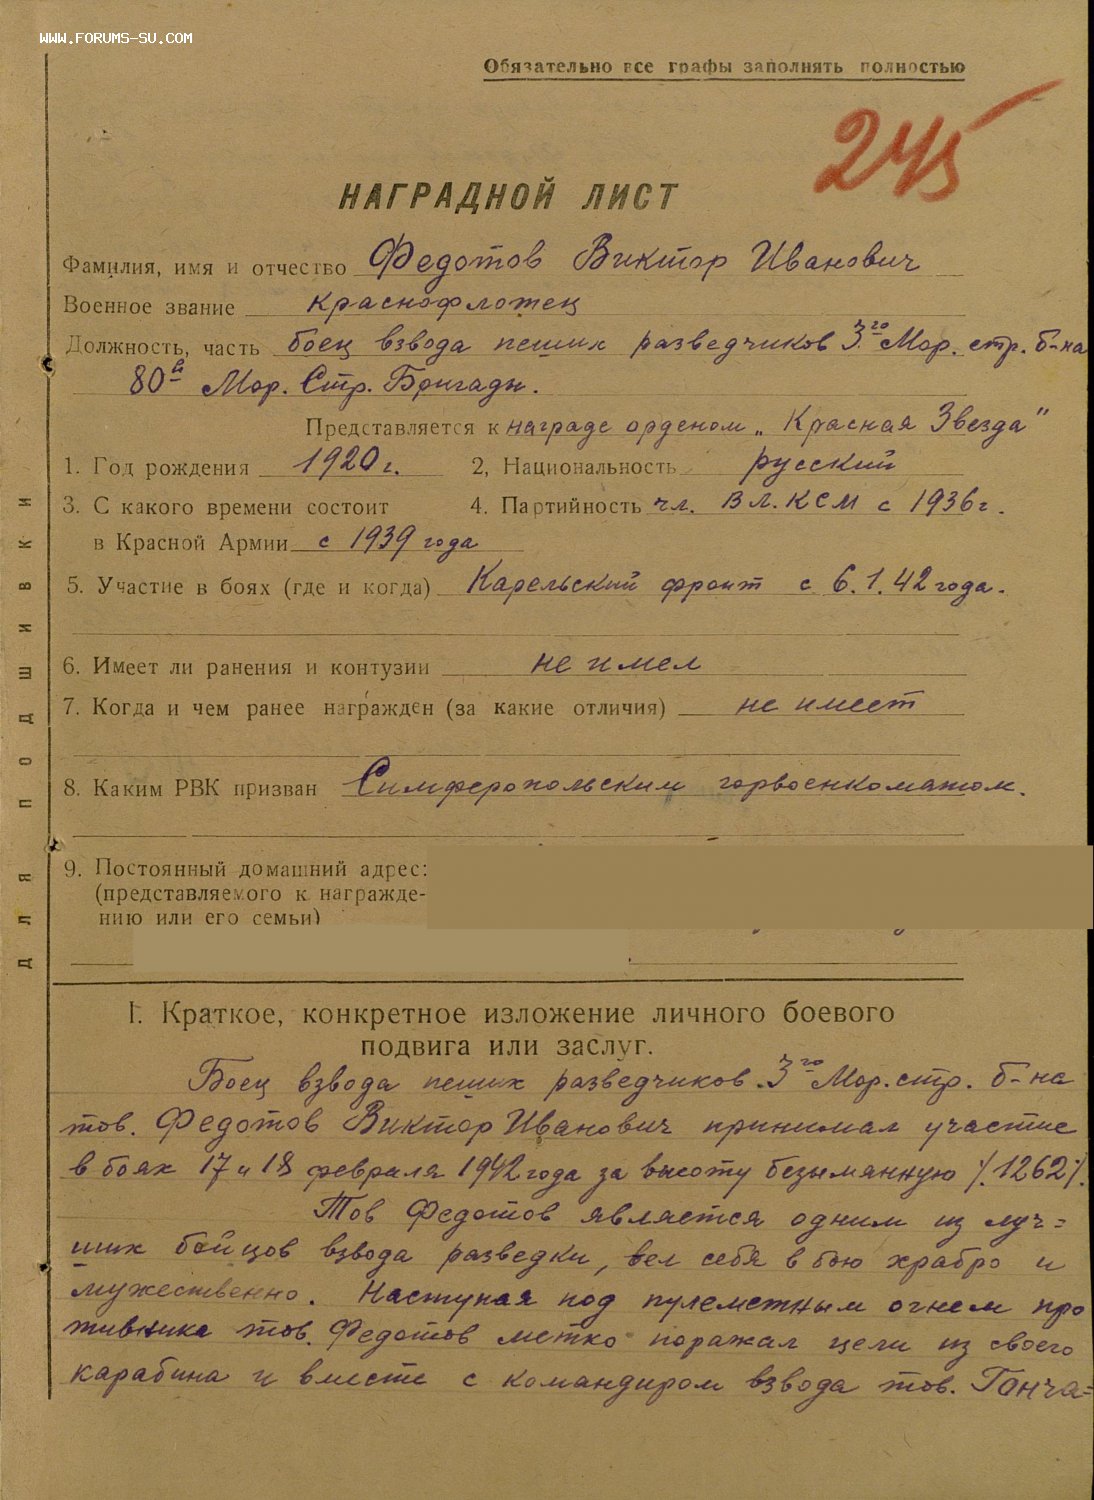 WWW.FORUMS-SU.COM
Обязательно все графы заполнять полностью
245
НАГРАДНОЙ ЛИСТ
Фамилия, имя и отчество Федотов Виктор Иванович
Военное звание краснофлотец
Должность, часть боец взвода пеших разведчиков 3го Мор. стр. б-на
80й Мор. Стр. Бригады.
Представляется к награде орденом „Красная Звезда"
1. Год рождения 1920 г. 2, Национальность русский
3. С какого времени состоит 4. Партийность чл. ВЛКСМ с 1936 г.
в Красной Армии с 1939 года
5. Участие в боях (где и когда) Карельский фронт с 6.1.42 года.
6. Имеет ли ранения и контузии не имел
7. Когда и чем ранее награжден (за какие отличия) не имеет
8. Каким РВК призван Симферопольским горвоенкоматом.
9. Постоянный домашний адрес:
(представляемого к награжде-
нию или его семьи)
ДЛЯ ПОДШИВКИ
I. Краткое, конкретное изложение личного боевого
подвига или заслуг.
Боец взвода пеших разведчиков 3го Мор. стр. б-на
тов. Федотов Виктор Иванович принимал участие
в боях 17 и 18 февраля 1942 года за высоту безымянную /.1262/.
Тов Федотов является одним из луч=
ших бойцов взвода разведки, вел себя в бою храбро и
мужественно. Наступая под пулеметным огнем про
тивника тов. Федотов метко поражал цели из своего
карабина и вместе с командиром взвода тов. Ганча=